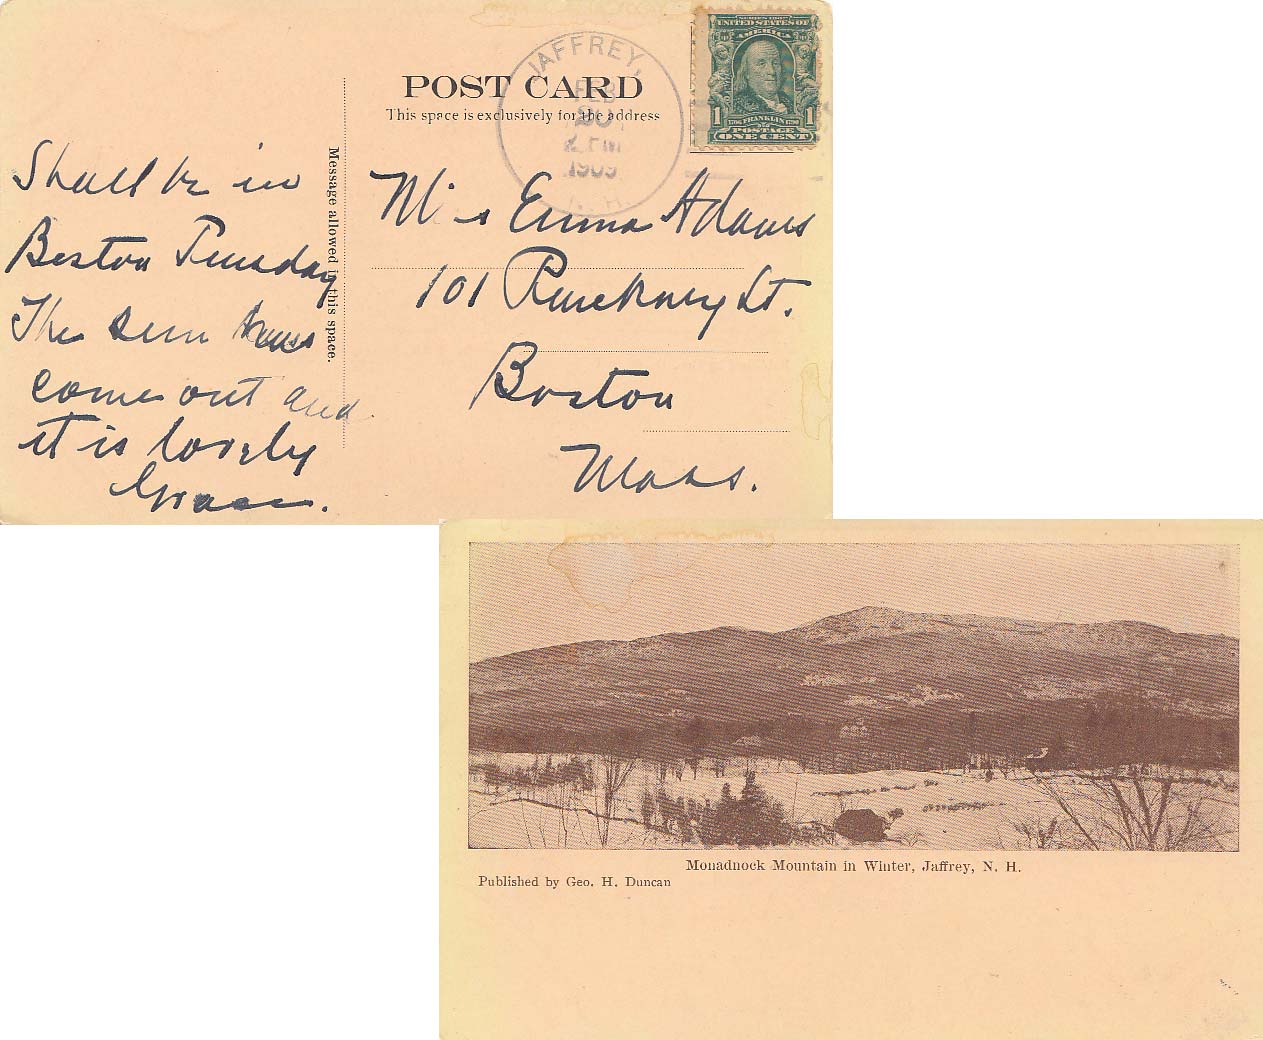 JAFFREY,
FEB
20
2 PM
1909
N. H.
SERIES 1902
UNITED STATES OF
AMERICA
1 1706 FRANKLIN 1790 1
POSTAGE
ONE CENT
POST CARD
This space is exclusively for the address
Message allowed in this space.
Shall be in
Boston Tuesday
The sun has
come out and
it is lovely
Grace.
Miss Emma Adams
101 Pinckney St.
Boston
Mass.
Monadnock Mountain in Winter, Jaffrey, N. H.
Published by Geo. H. Duncan